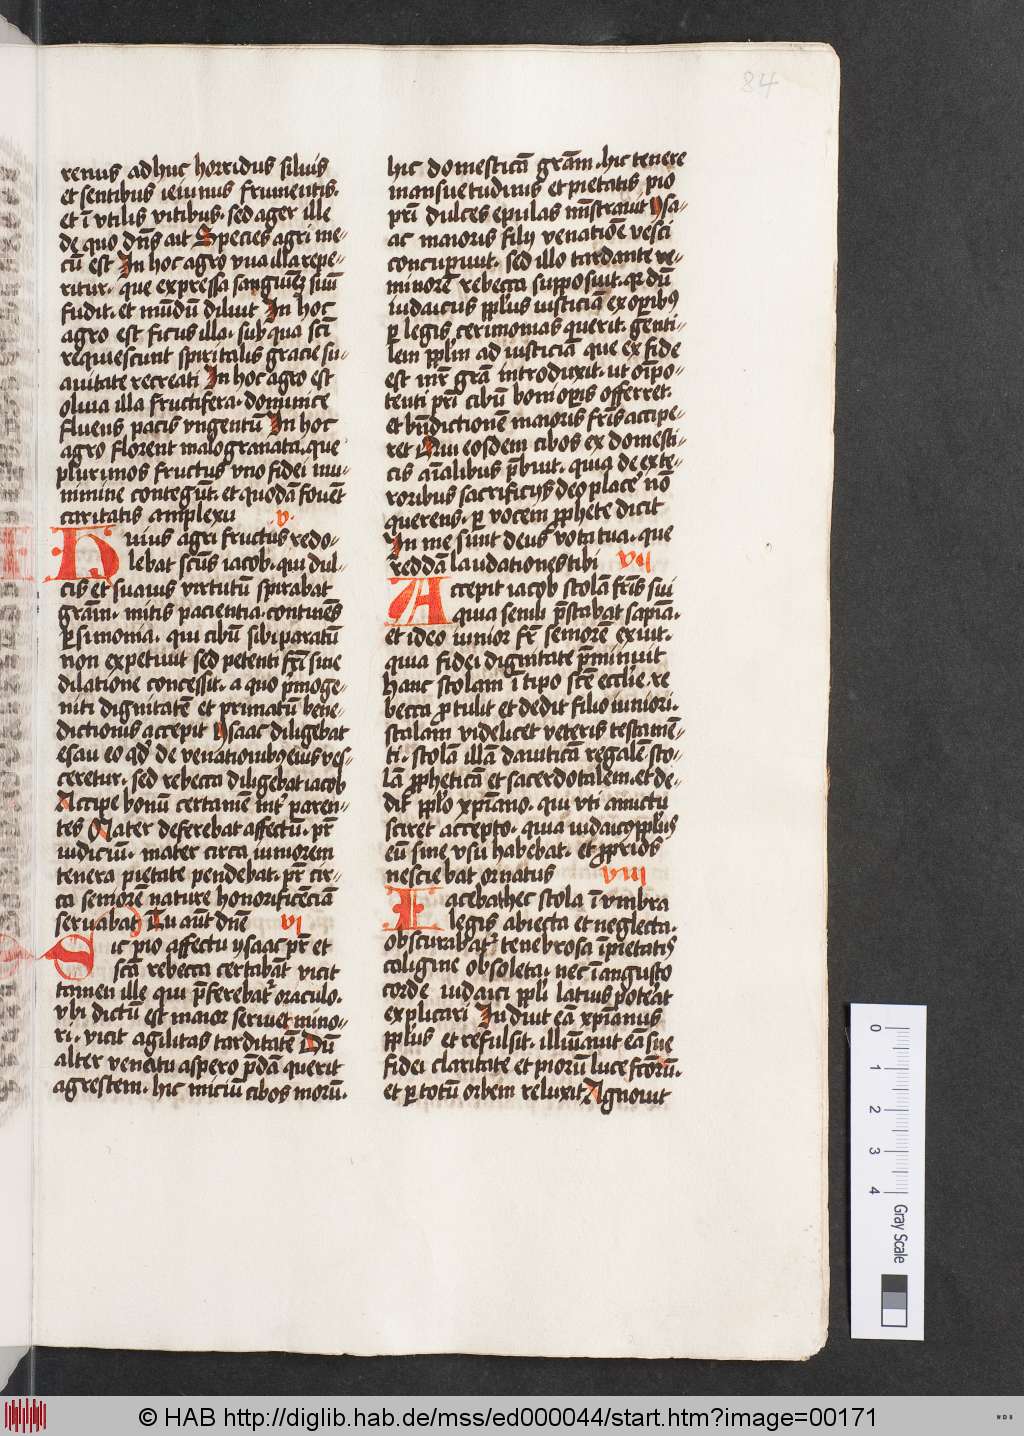 84
renus adhuc horridus siluis
et sentibus ieiunus frumentis.
et ī vtilis vitibus. sed ager ille
de quo dn̄s ait Species agri me-
cū est In hoc agro vua illa repe-
ritur. que expressa sanguinē suū
fudit. et mūdū diluit In hoc
agro est ficus illa. sub qua sc̄i
requiescunt spiritalis gracie su-
auitate recreati In hoc agro est
oliua illa fructifera. dominice
fluens pacis vngentū In hoc
agro florent malogranata. que
plurimos fructus vno fidei mu-
nimine contegūt. et quodā fouēt
caritatis amplexu v.
Huius agri fructus redo-
lebat scūs iacob. qui dul-
cis et suauis virtutū spirabat
grām. mitis pacientia. continēs
p̄simonia. qui cibū sibi paratū
non expetiuit sed petenti fr̄i sine
dilatione concessit. a quo p̄moge-
niti dignitatē et primatū bene-
dictionis accepit Ysaac diligebat
esau eo qd̄ de venationibꝯ eius ves-
ceretur. sed rebecca diligebat iacob
Accipe bonū certamē int̄ paren-
tes Mater deferebat affectū. pr̄
iudiciū. mater circa iuniorem
tenera pietate pendebat. pr̄ cir-
ca seniorē nature honorificēciā
seruabat Tu aūt dn̄e vi
Sic pio affectu ysaac pr̄ et
scā rebecca certabāt vicit
tamen ille qui p̄ferebat᷑ oraculo.
vbi dictū est maior seruiet mino-
ri. vicit agilitas tarditatē Dū
alter venatu aspero p̄dā querit
agrestem. hic miciū cibos morū.
hic domesticā grām. hic tenere
mansuetudinis et pietatis pio
pr̄i dulces epulas mīstrauit Ysa-
ac maioris filij venationē vesci
concupiuit. sed illo tardante ve-
minorē rebecca supposuit. qr dū
iudaicus ppl̄us iusticiā ex opibꝯ
p legis cerimonias querit. genti-
lem ppl̄m ad iusticiā que ex fide
est mr̄ grā introduxit. ut oīpo-
tenti pr̄i cibū boni opis offerret.
et bn̄dictionē maioris fr̄is accipe-
ret Qui eosdem cibos ex domesti-
cis aīalibus p̄buit. quia de exte-
rioribus sacrificijs deo placē nō
querens. p vocem pphete dicit
In me sunt deus vota tua. que
reddā laudationes tibi vii
Accepit iacob stolā fr̄is sui
quia senili p̄stabat sapīa.
et ideo iunior fr̄ seniorē exuit.
quia fidei dignitate p̄minuit
Hanc stolam ī tipo scē eccl̄ie re
becca ptulit et dedit filio iuniori.
stalam videlicet veteris testamē-
ti. stolā illā dauiticā regalē sto-
lā ppheticā et sacerdotalem. et de-
dit ppl̄o xp̄iano. qui vti amictu
sciret accepto. quia iudaicꝯ ppl̄us
eū sine vsu habebat. et pprios
nesciebat ornatus viii
Iacebat hec stola ī vmbra
legis abiecta et neglecta.
obscurabat᷑ tenebrosa īpietatis
caligine obsoleta. nec ī angusto
corde iudaici ppl̄i latius poteat
explicari Induit eā xp̄ianus
ppl̄us et refulsit. illuīauit eā sue
fidei claritate et piorū luce fc̄orū.
et p totū orbem reluxit Agnouit
0 1 2 3 4
Gray Scale
© HAB http://diglib.hab.de/mss/ed000044/start.htm?image=00171